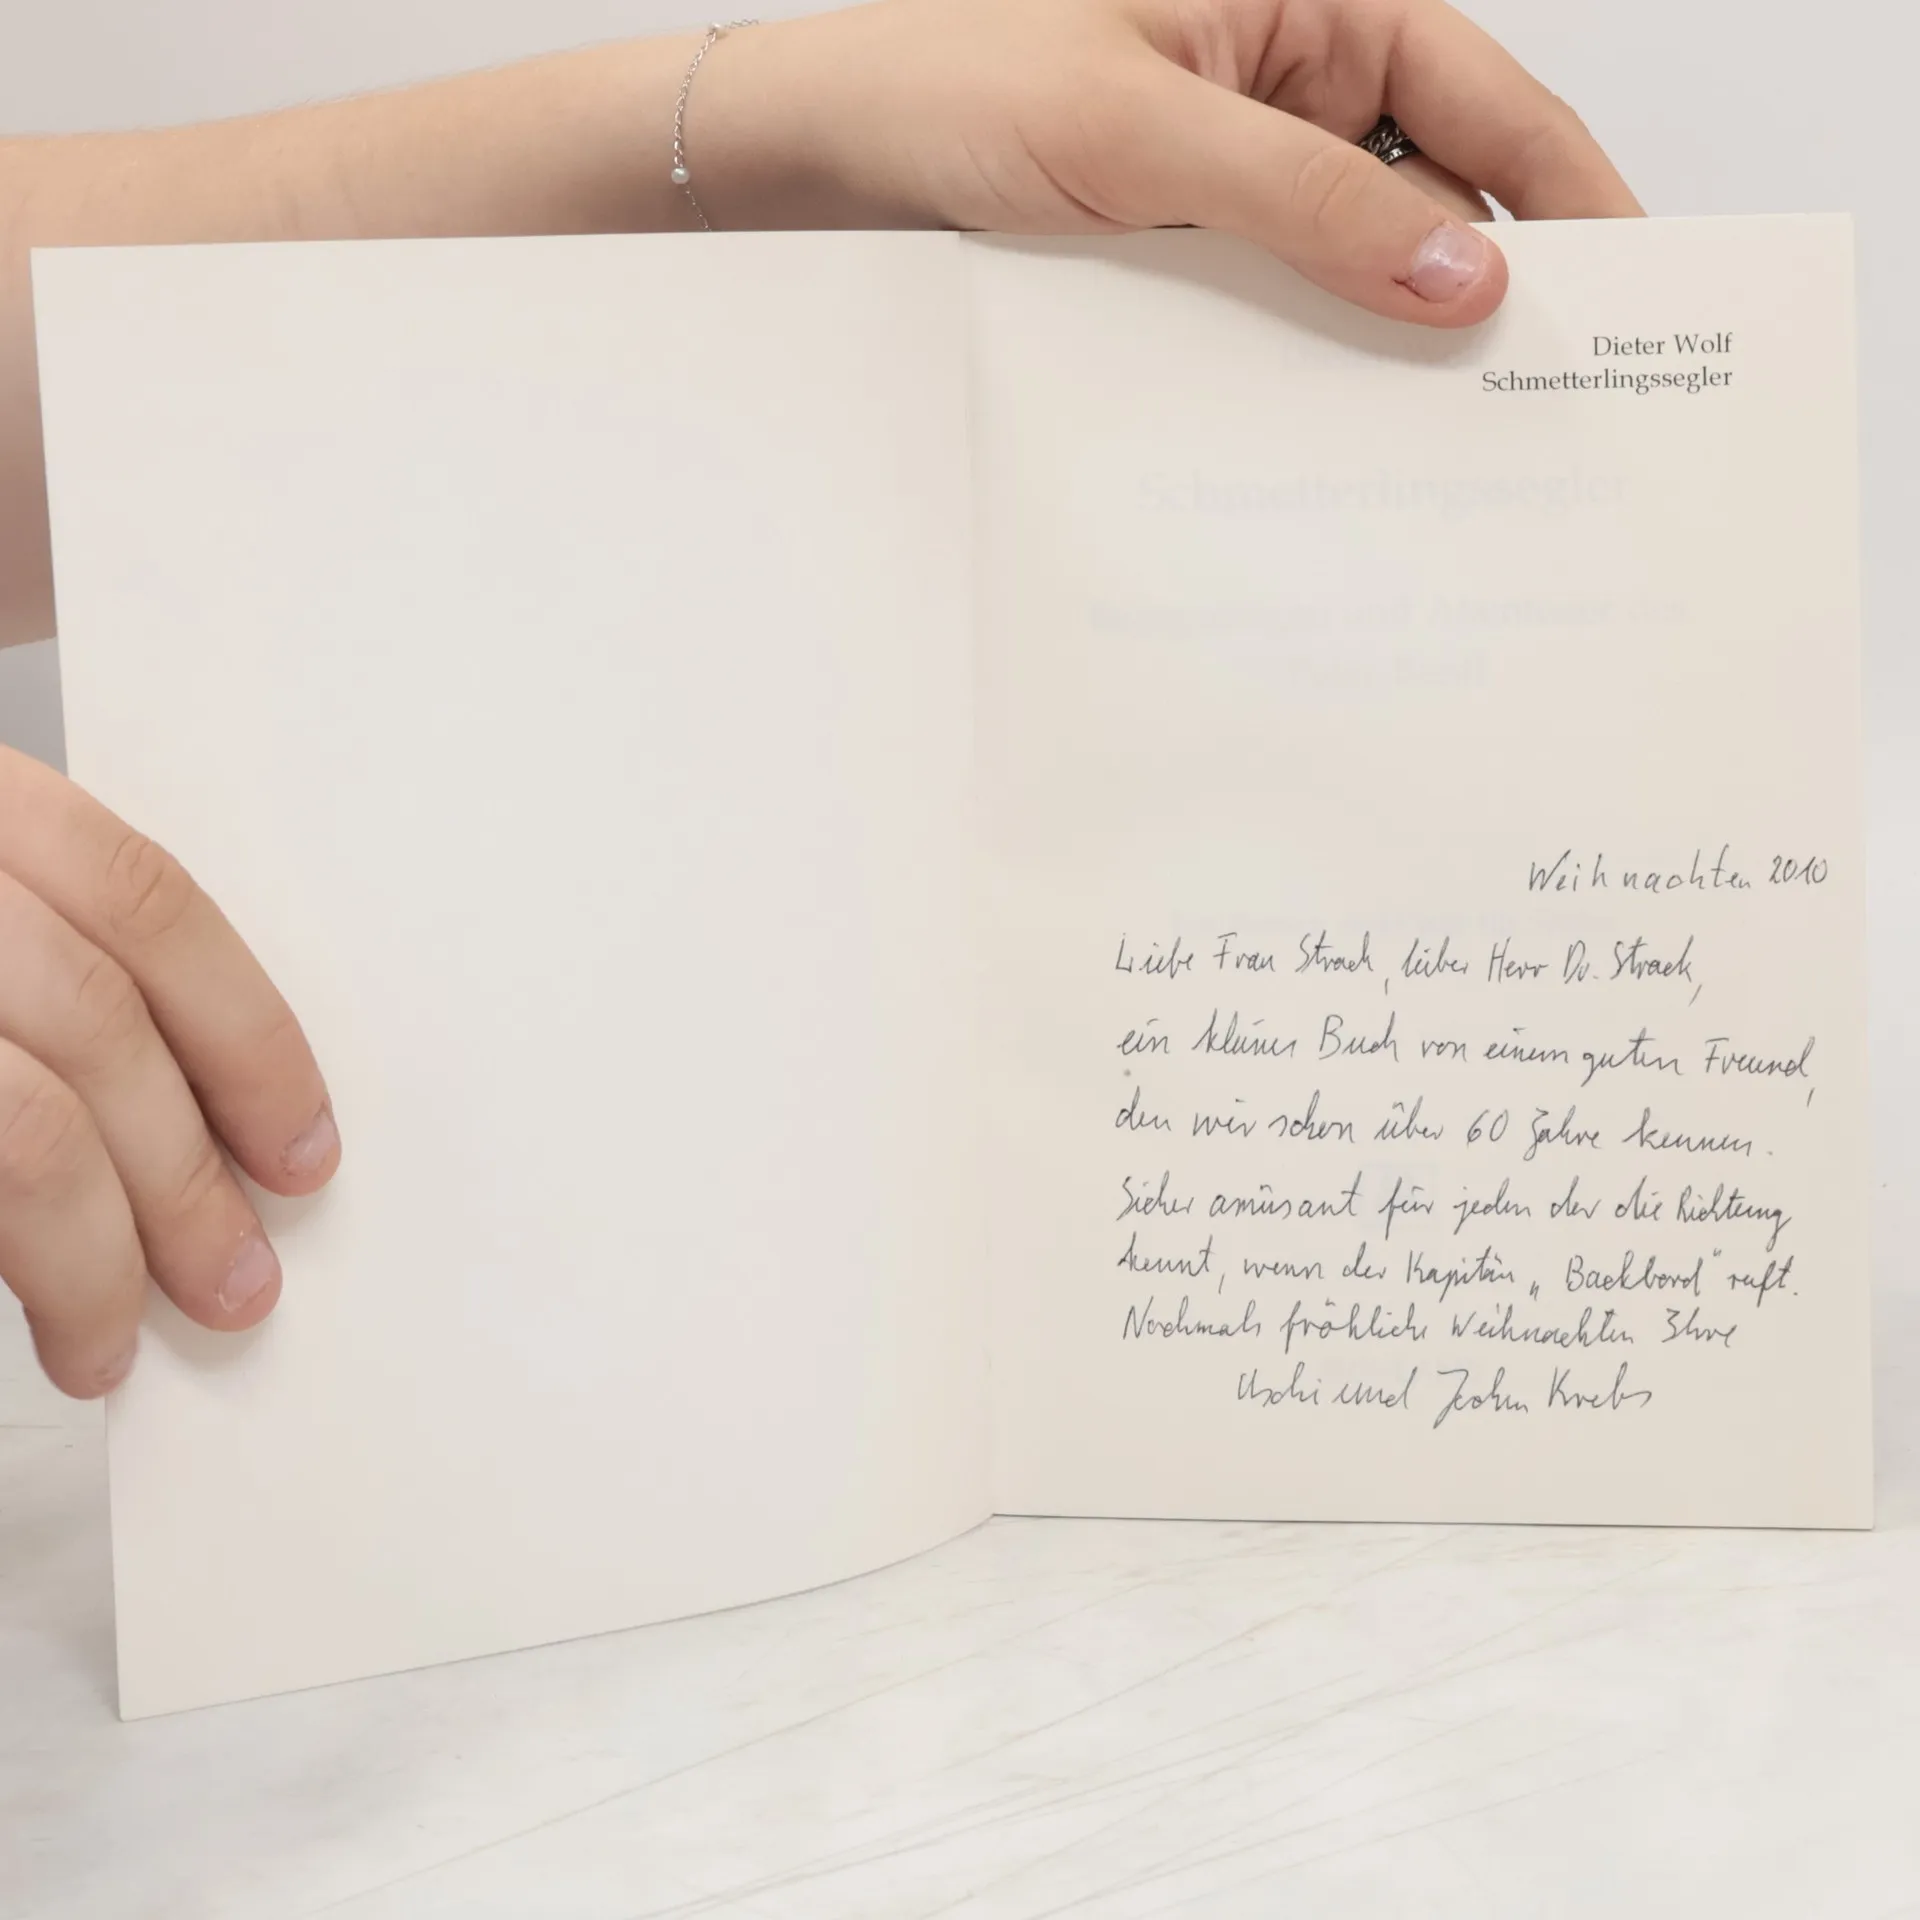 Dieter Wolf
Schmetterlingssegler
Schmetterlingssegler
Weihnachten 2010
Liebe Frau Strack, lieber Herr Dr. Strack,
ein kleines Buch von einem guten Freund,
den wir schon über 60 Jahre kennen.
Sicher amüsant für jeden der die Richtung
kennt, wenn der Kapitän „Backbord" ruft.
Nochmals fröhliche Weihnachten Ihre
Uschi und Krebs